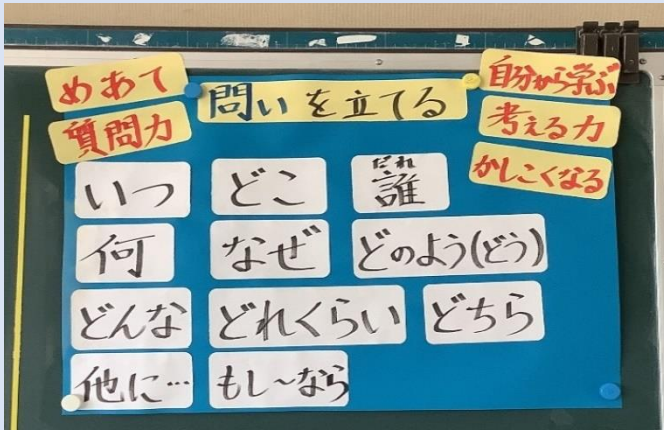 めあて
質問力
問いを立てる
自分から学ぶ
考える力
かしこくなる
いつ どこ 誰
だれ
何 なぜ どのよう(どう)
どんな どれくらい どちら
他に… もし~なら